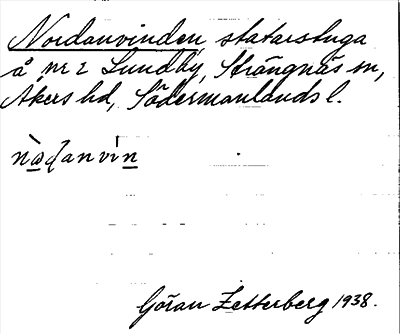 Nordanvinden, statarstuga
å nr 2 Lundby, Strängnäs sn,
Åkers hd, Södermanlands l.
Göran Zetterberg 1938.